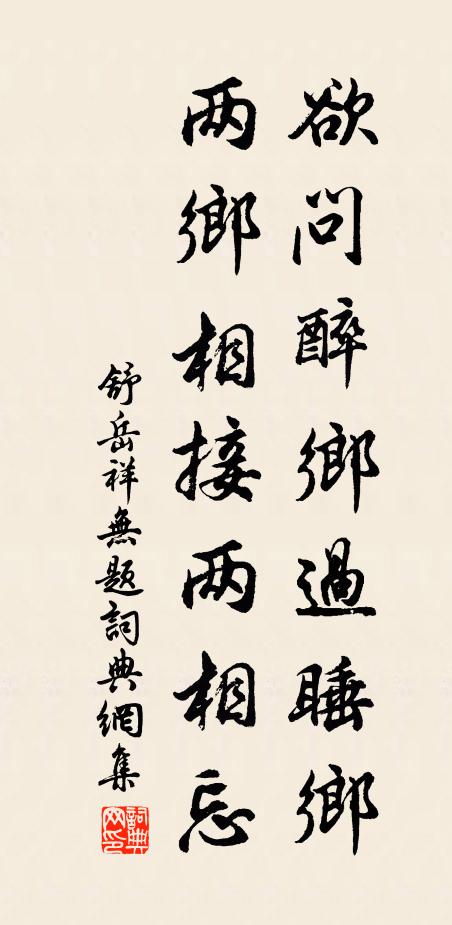 欲問醉鄉過睡鄉
两鄉相接两相忘
舒岳祥無題詞典網集
詞典網印